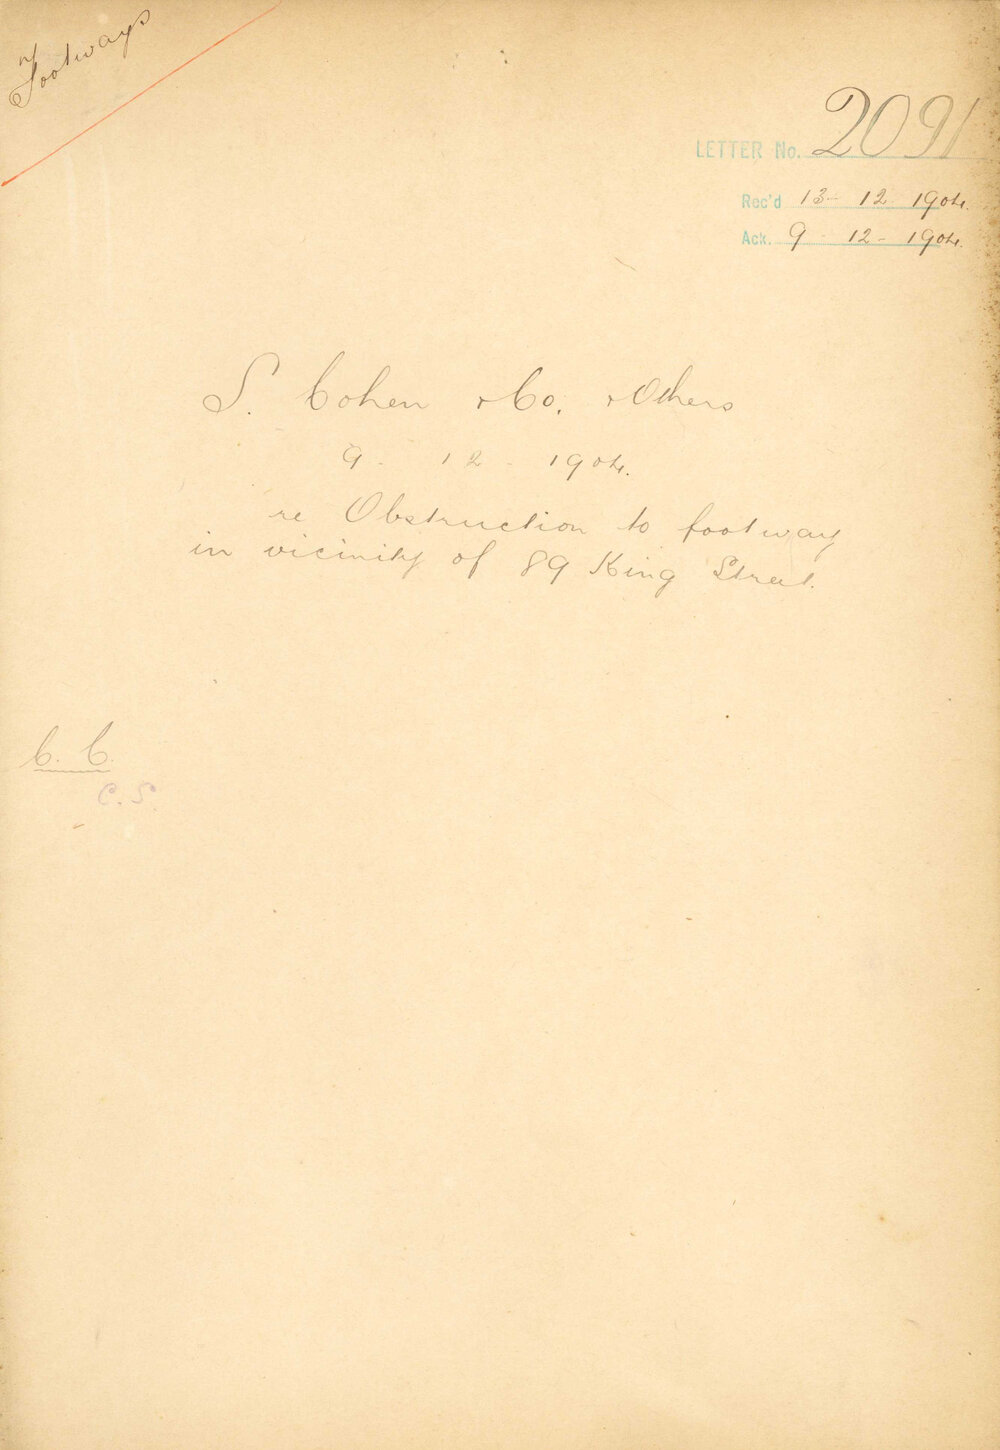 Footways
LETTER No. 2091
Rec'd 13-12-1904.
Ack. 9-12-1904.
S. Cohen & Co. & Others
9-12-1904.
re Obstruction to footway
in vicinity of 89 King Street.
C. C.
C. S.